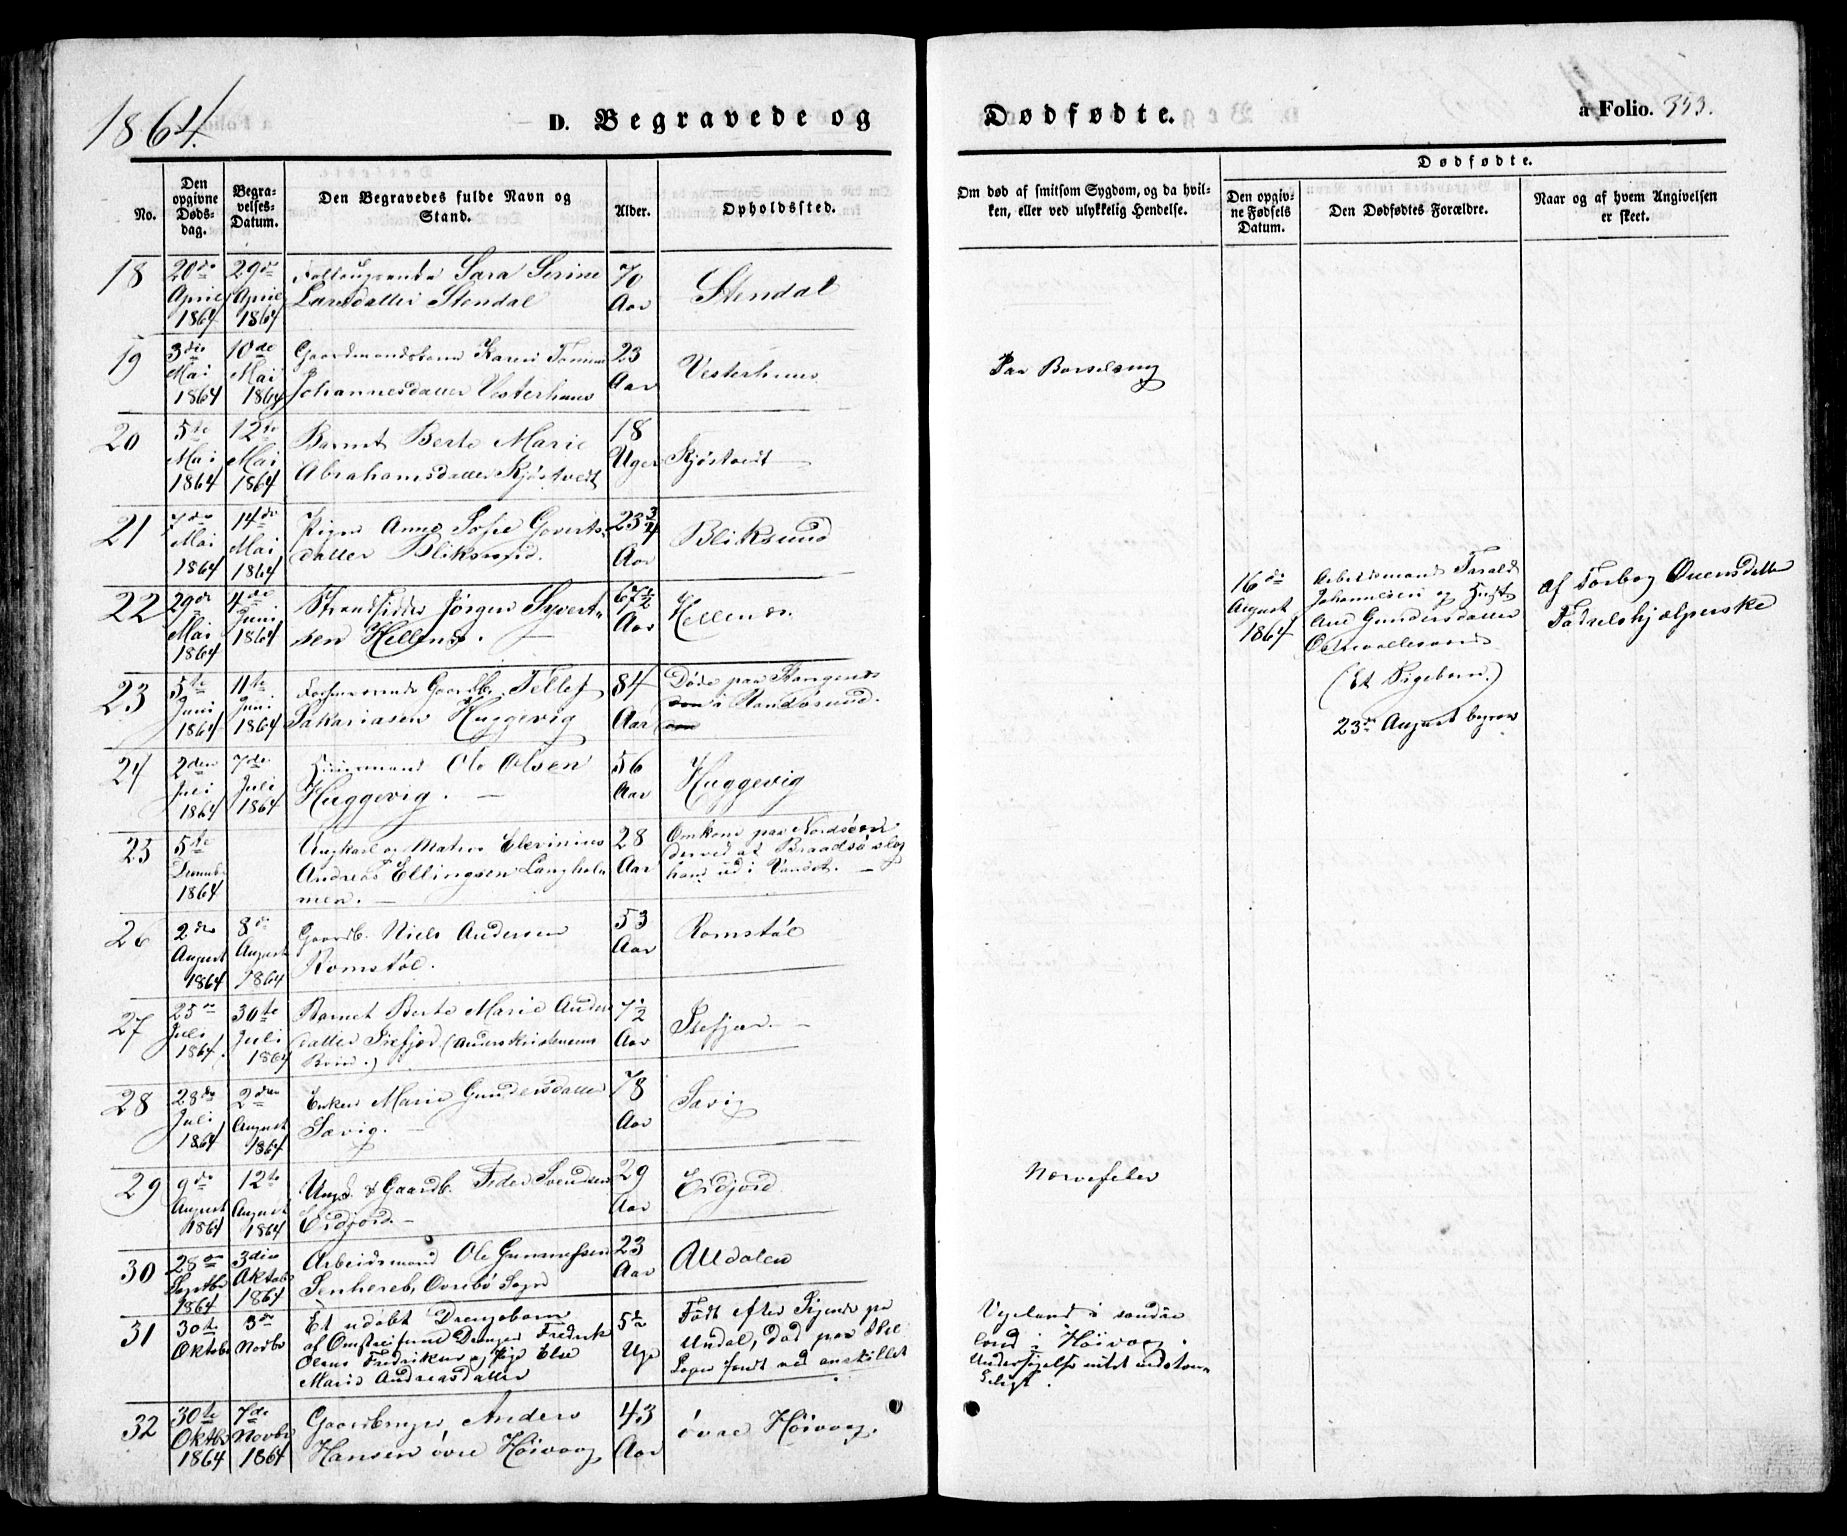 1864.
D. Begravede og
Dødfødte.
a Folio. 353.
No.
Den opgivne Døds-dag.
Begra-velses-Datum.
Den Begravedes fulde Navn og Stand.
Alder.
Opholdssted.
Om død af smitsom Sygdom, og da hvil-
ken, eller ved ulykkelig Hendelse.
Dødfødte.
Den opgiv-ne Fødsels Datum.
Den Dødfødtes Forældre.
Naar og af hvem Angivelsen
er skeet.
18 20de April 1864 29de April 1864
Sara Serine
Larsdatter Stendal
70 Aar
Stendal
19 3die Mai 1864 10de Mai 1864
Gaardmandskone Karen
Johannesdatter Vesterhuus
23 Aar
Vesterhuus
Paa Barselseng
20 5te Mai 1864 12te Mai 1864
Barnet Berte Marie
Abrahamsdatter Kjøstvedt
18 Uger
Kjøstvedt
21 7de Mai 1864 14de Mai 1864
Pigen Anne Sofie Goverts-
datter Bliksund.
23 3/4 Aar
Bliksund
22 29de Mai 1864 4de Juni 1864
Strandsidder Jørgen Syvert-
sen Hellenes.
67 1/2 Aar
Hellenes.
16de August 1864
Arbeidsmand Tarald
Johannesen og Hust
Ane Gundersdatter
(Et Pigebarn.)
23de August begrav
af Torbor Ovensdatter
Fødselshjælperske
23 5te Juni 1864 11te Juni 1864
Gaardb. Tellef
Sakariasen Huggevig
84 Aar
Døde paa
i Randøsund.
24 2den Juli 1864 7de Juli 1864
Huusmand Ole Olsen
Huggevig.
56 Aar
Huggevig
25 5te 1864
Ungkarl og Matros Elevinius
Andreas Ellingsen Langhol-
men.
28 Aar
Omkom paa Nordsøen
derved at Braadsø slog
ham ud i Vandet.
26 2den August 1864 8de August 1864
Gaardb. Niels Andersen
Romstøl.
53 Aar
Romstøl
27 25de Juli 1864. 30te Juli 1864
Barnet Berte Marie Anders
datter Isefjær (Anders Kristensens
Barn.)
7 1/2 Aar
Isefjær.
28 28de Juli 1864 2den August 1864
Enken Marie Gundersdatter
Sævig.
78 Aar
Sævig
29 9de August 1864 12te August 1864
Ungk. & Gaardb. Peder Svendsen
Eidjord.
29 Aar
Eidjord
Nervefeber
30 28de Septbr 1864 3die Oktobr 1864
Arbeidsmand Ole Gunnufsen
Senhereb, Ovrebø Sogn
23 Aar
Aldalen
31 30te Oktobr 3de Novbr
Et udøbt Drengebarn
af Omstreifende Drenger Fredrik
Olaus Fredriksen og Pige Else
Marie Andreasdatter
5 1/2 Uge
Født efter Sigende paa
Undal, død paa
Vegeland i søndre
i Høivaag.
32 30te Oktbr 1864 7de Novbr 1864
Gaardbruger Anders
Hansen øvre Høivaag
43 Aar
øvre Høivaag.